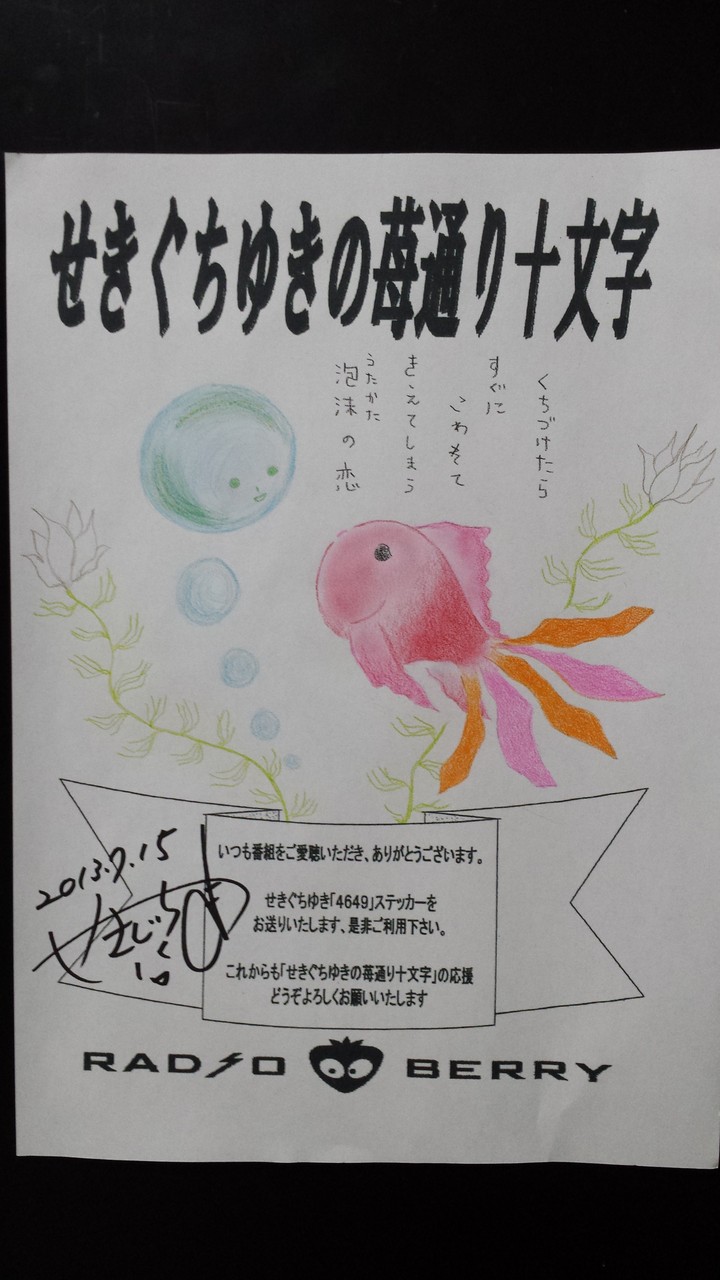 せきぐちゆきの苺通り十文字
くちづけたら
すぐに
こわれて
きえてしまう
うたかた
泡沫の恋
2013.7.15
せきぐちゆき
いつも番組をご愛聴いただき、ありがとうございます。
せきぐちゆき「4649」ステッカーを
お送りいたします、是非ご利用下さい。
これからも「せきぐちゆきの苺通り十文字」の応援
どうぞよろしくお願いいたします
RADIO BERRY